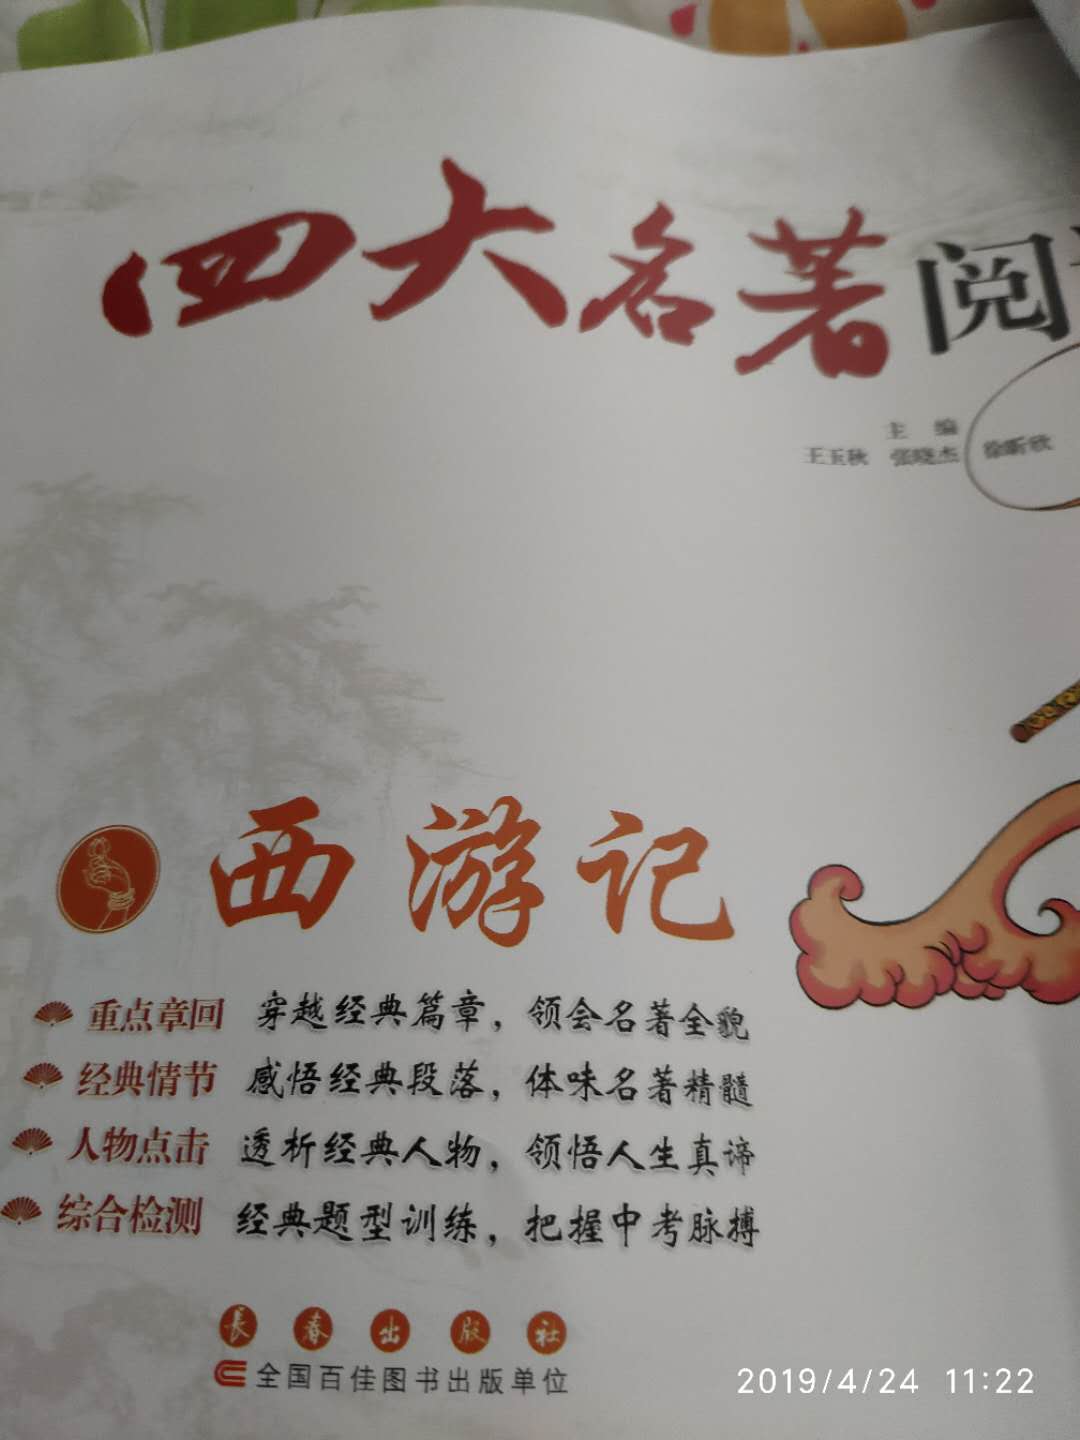 四大名著阅
主 编
王玉秋 张晓杰 徐昕欣
西游记
重点章回 穿越经典篇章，领会名著全貌
经典情节 感悟经典段落，体味名著精髓
人物点击 透析经典人物，领悟人生真谛
综合检测 经典题型训练，把握中考脉搏
長春出版社
全国百佳图书出版单位
2019/4/24 11:22